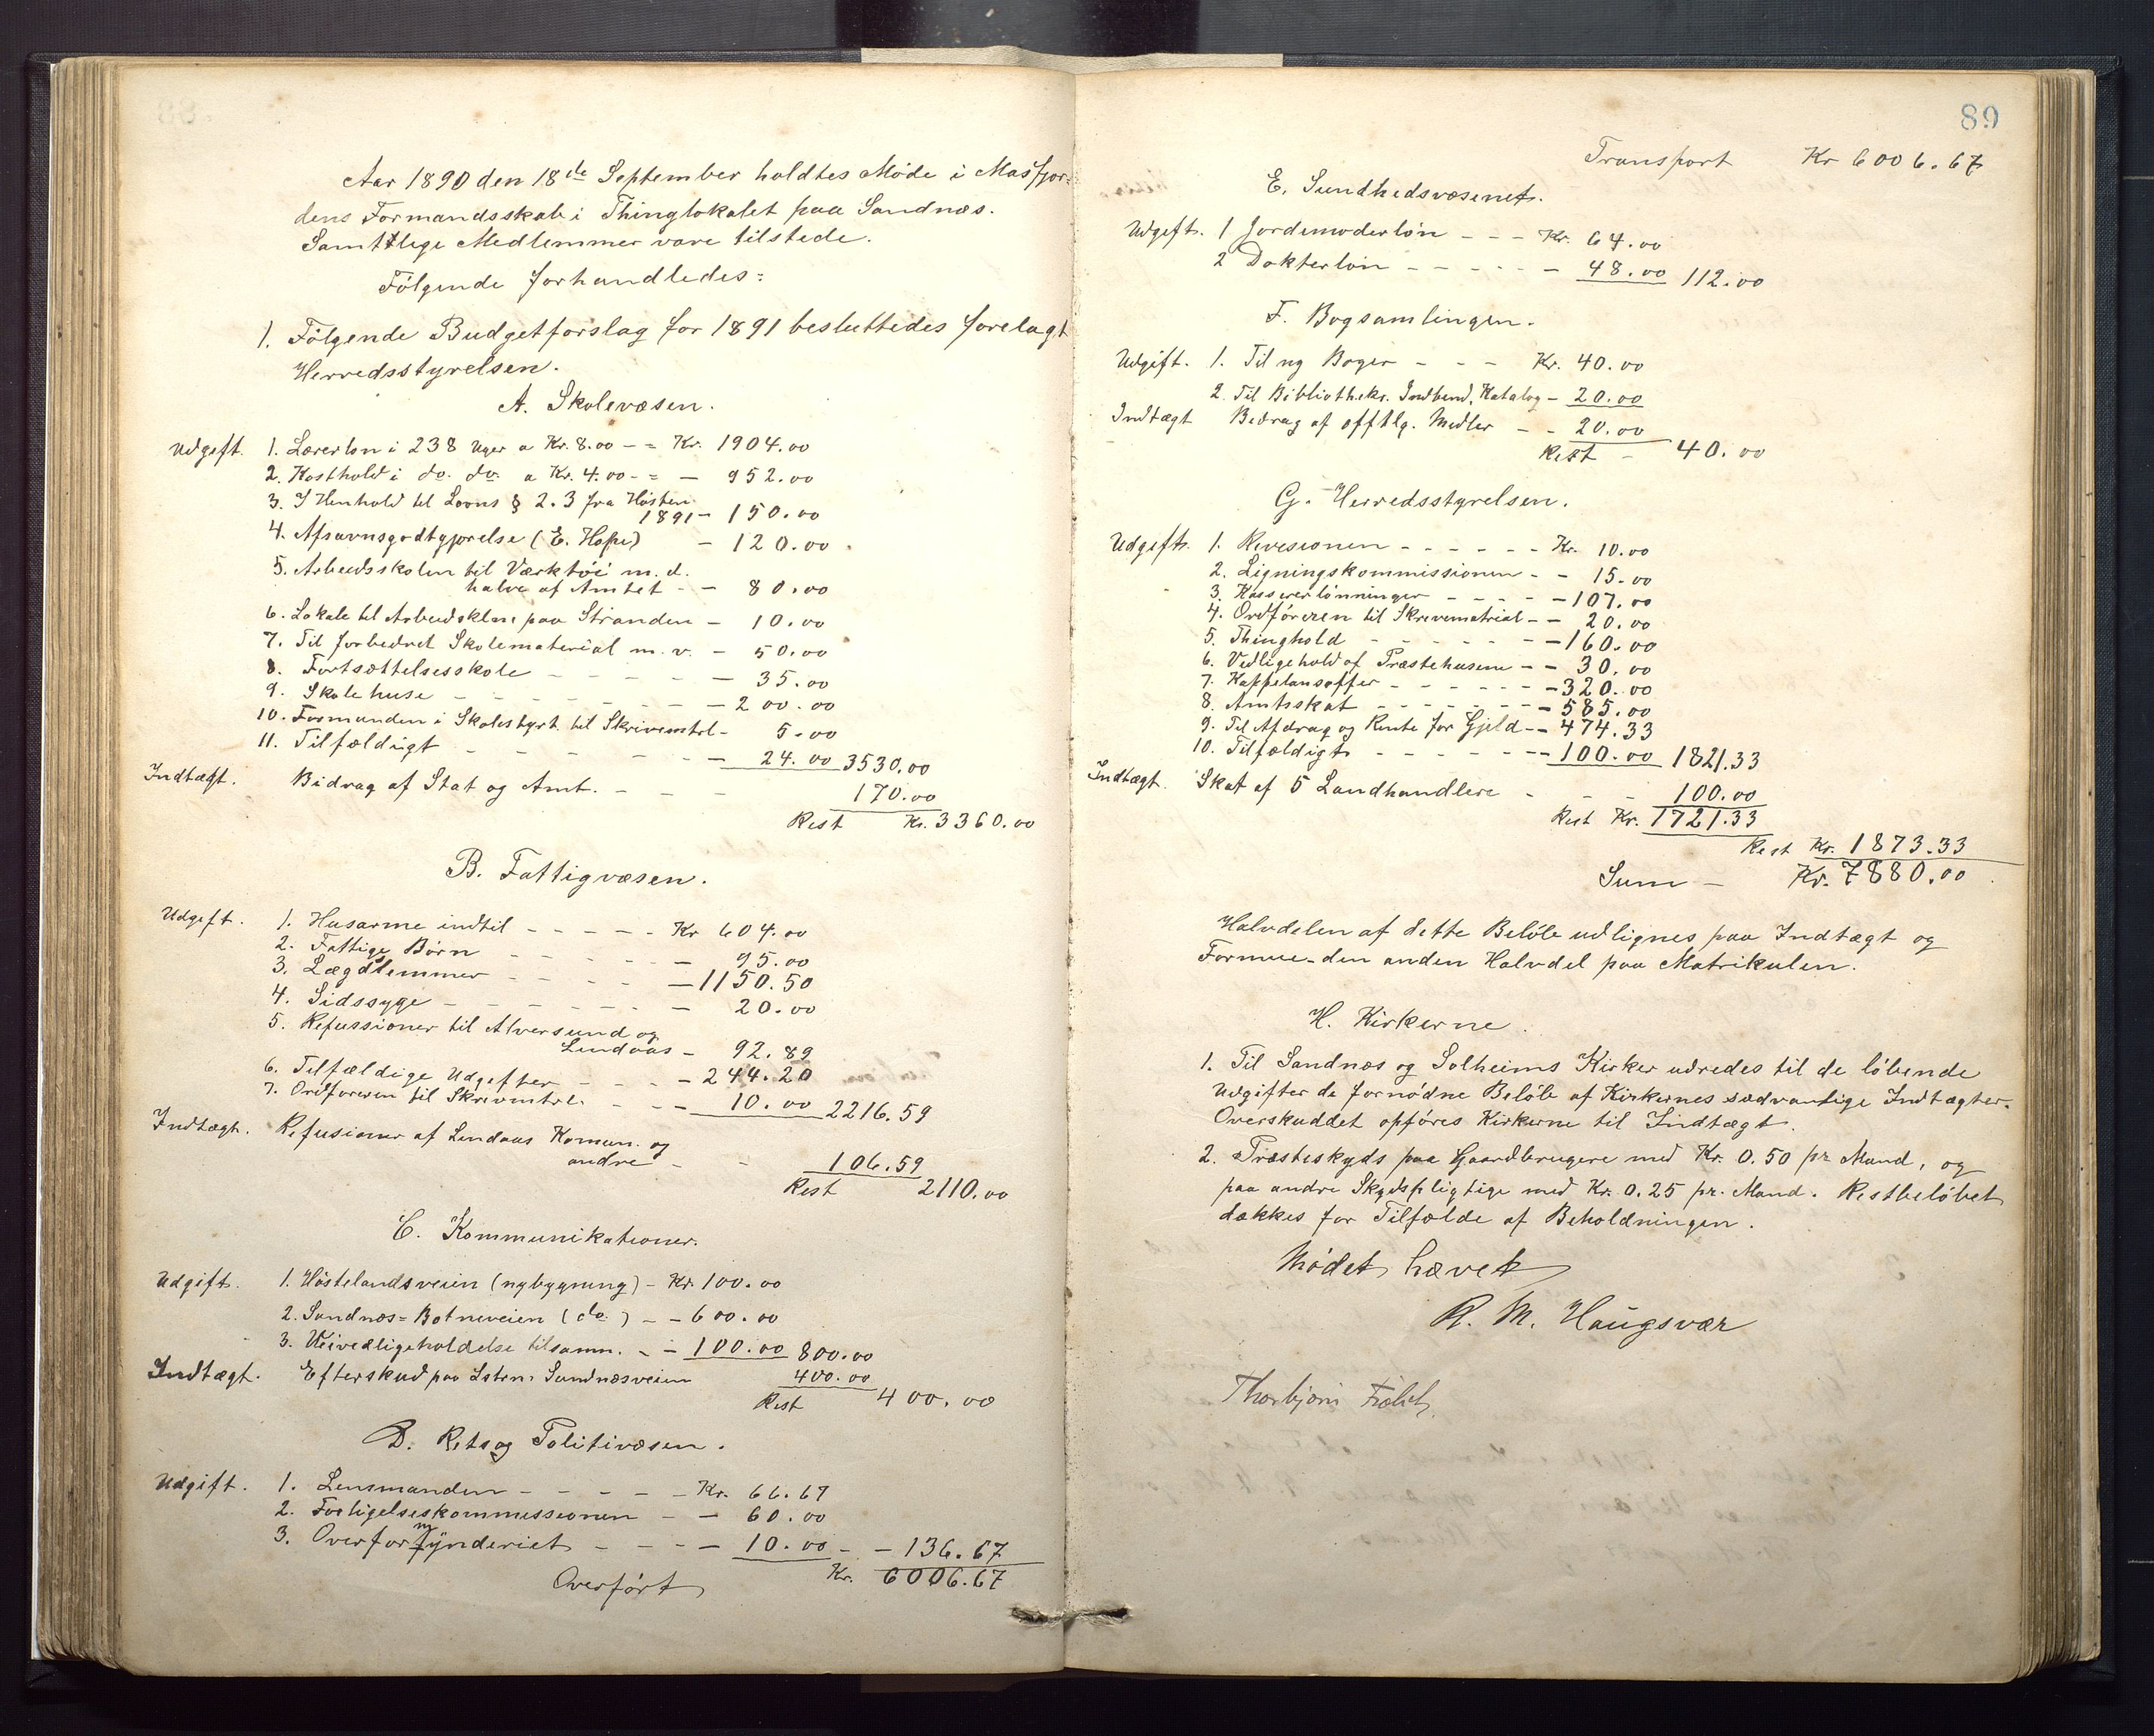 Aar 1890 den 18de September holdtes Møde i Masfjor-
dens Formandsskab i Thinglokalet paa Sandnæs.
Samtlige Medlemmer vare tilstede.
Følgende forhandledes:
1. Følgende Budgetforslag for 1891 besluttedes forelagt
Herredsstyrelsen.
A. Skolevæsen.
Udgift. 1. Lærerløn i 238 Uger a Kr. 8.00 - = Kr. 1904.00
2. Kosthold i do. do. a Kr. 4.00 - = - 952.00
3. I Henhold til Lovens § 2.3 fra Høsten
1891 - 150.00
4. Afsavnsgodtgjørelse (E. Hope) - 120.00
5. Arbeidsskolen til Værktøi m. d.
halve af Amtet - - 80.00
6. Lokale til Arbeidsklne paa Stranden - 10.00
7. Til forbedret Skolematerial m. v. - 50.00
8. Fortsættelsesskole - - - - - 35.00
9. Skolehuse - - - - - - 200.00
10. Formanden i Skolestyrt. til Skrivemtrl - 5.00
11. Tilfældigt - - - - - - 24.00 3530.00
Indtægt. Bidrag af Stat og Amt. - - - 170.00
Rest Kr. 3360.00
B. Fattigvæsen.
Udgift. 1. Husarme indtil - - - - - Kr 604.00
2. Fattige Børn - - - - - 95.00
3. Lægdlemmer - - - - - 1150.50
4. Sidssyge - - - - - - 20.00
5. Refussioner til Alversund og
Lindaas - 92.89
6. Tilfældige Udgifter - - - - 244.20
7. Ordføreren til Skrivmtrl. - - - 10.00 2216.59
Indtægt. Refusioner af Lindaas Komun. og
andre - - 106.59
Rest 2110.00
C. Kommunikationer.
Udgift. 1. Høstelandsveien (nybygning) - Kr. 100.00
2. Sandnæs=Botneveien (do.) - - 600.00
3. Veivedligeholdelse tilsamn. - - 100.00 800.00
Indtægt. Efterskud paa Sandnæsveien 400.00
Rest 400.00
D. Rets og Politivæsen.
Udgift. 1. Lensmanden - - - - - Kr. 66.67
2. Forligelseskommissionen - - 60.00
3. Overformynderiet - - - - 10.00 - - 136.67
Overført Kr. 6006.67
89
Transport Kr 6006.67
E. Sundhedsvæsenet.
Udgift. 1 Jordemoderløn - - - Kr. 64.00
2 Dokterløn - - - - - - 48.00 112.00
F. Bogsamlingen.
Udgift. 1. Til ny Bøger - - - Kr. 40.00
2. Til Bibliothekr. Indbind, Katalog - 20.00
Indtægt Bidrag af offtlg. Midler - - 20.00
Rest - 40.00
G. Herredsstyrelsen.
Udgift. 1. Revesionen - - - - - - Kr. 10.00
2. Ligningskommissionen - - 15.00
3. Kassererlønninger - - - - - 107.00
4. Ordføreren til Skrivematrial - - 20.00
5. Thinghold - - - - - - 160.00
6. Vedligehold af Præstehusene - - 30.00
7. Kappelansoffer - - - - - - 320.00
8. Amtsskat - - - - - - - 585.00
9. Til Afdrag og Rente for Gjeld - - 474.33
10. Tilfældigt - - - - - - 100.00 1821.33
Indtægt. Skat af 5 Landhandlere - - - 100.00
Rest Kr. 1721.33
Rest Kr. 1873.33
Sum - Kr. 7880.00
Halvdelen af dette Beløb udlignes paa Indtægt og
Formue - den anden Halvdel paa Matrikulen.
H. Kirkerne.
1. Til Sandnæs og Solheims Kirker udredes til de løbende
Udgifter de fornødne Beløb af Kirkernes sædvanlige Indtægter.
Overskuddet opføres Kirkerne til Indtægt.
2. Præsteskyds paa Gaardbrugere med Kr. 0.50 pr Mand, og
paa andre Skydspligtige med Kr. 0.25 pr. Mand. Restbeløbet
dækkes for Tilfælde af Beholdningen.
Mødet hævet
R. M. Haugsvær
Thorbjørn